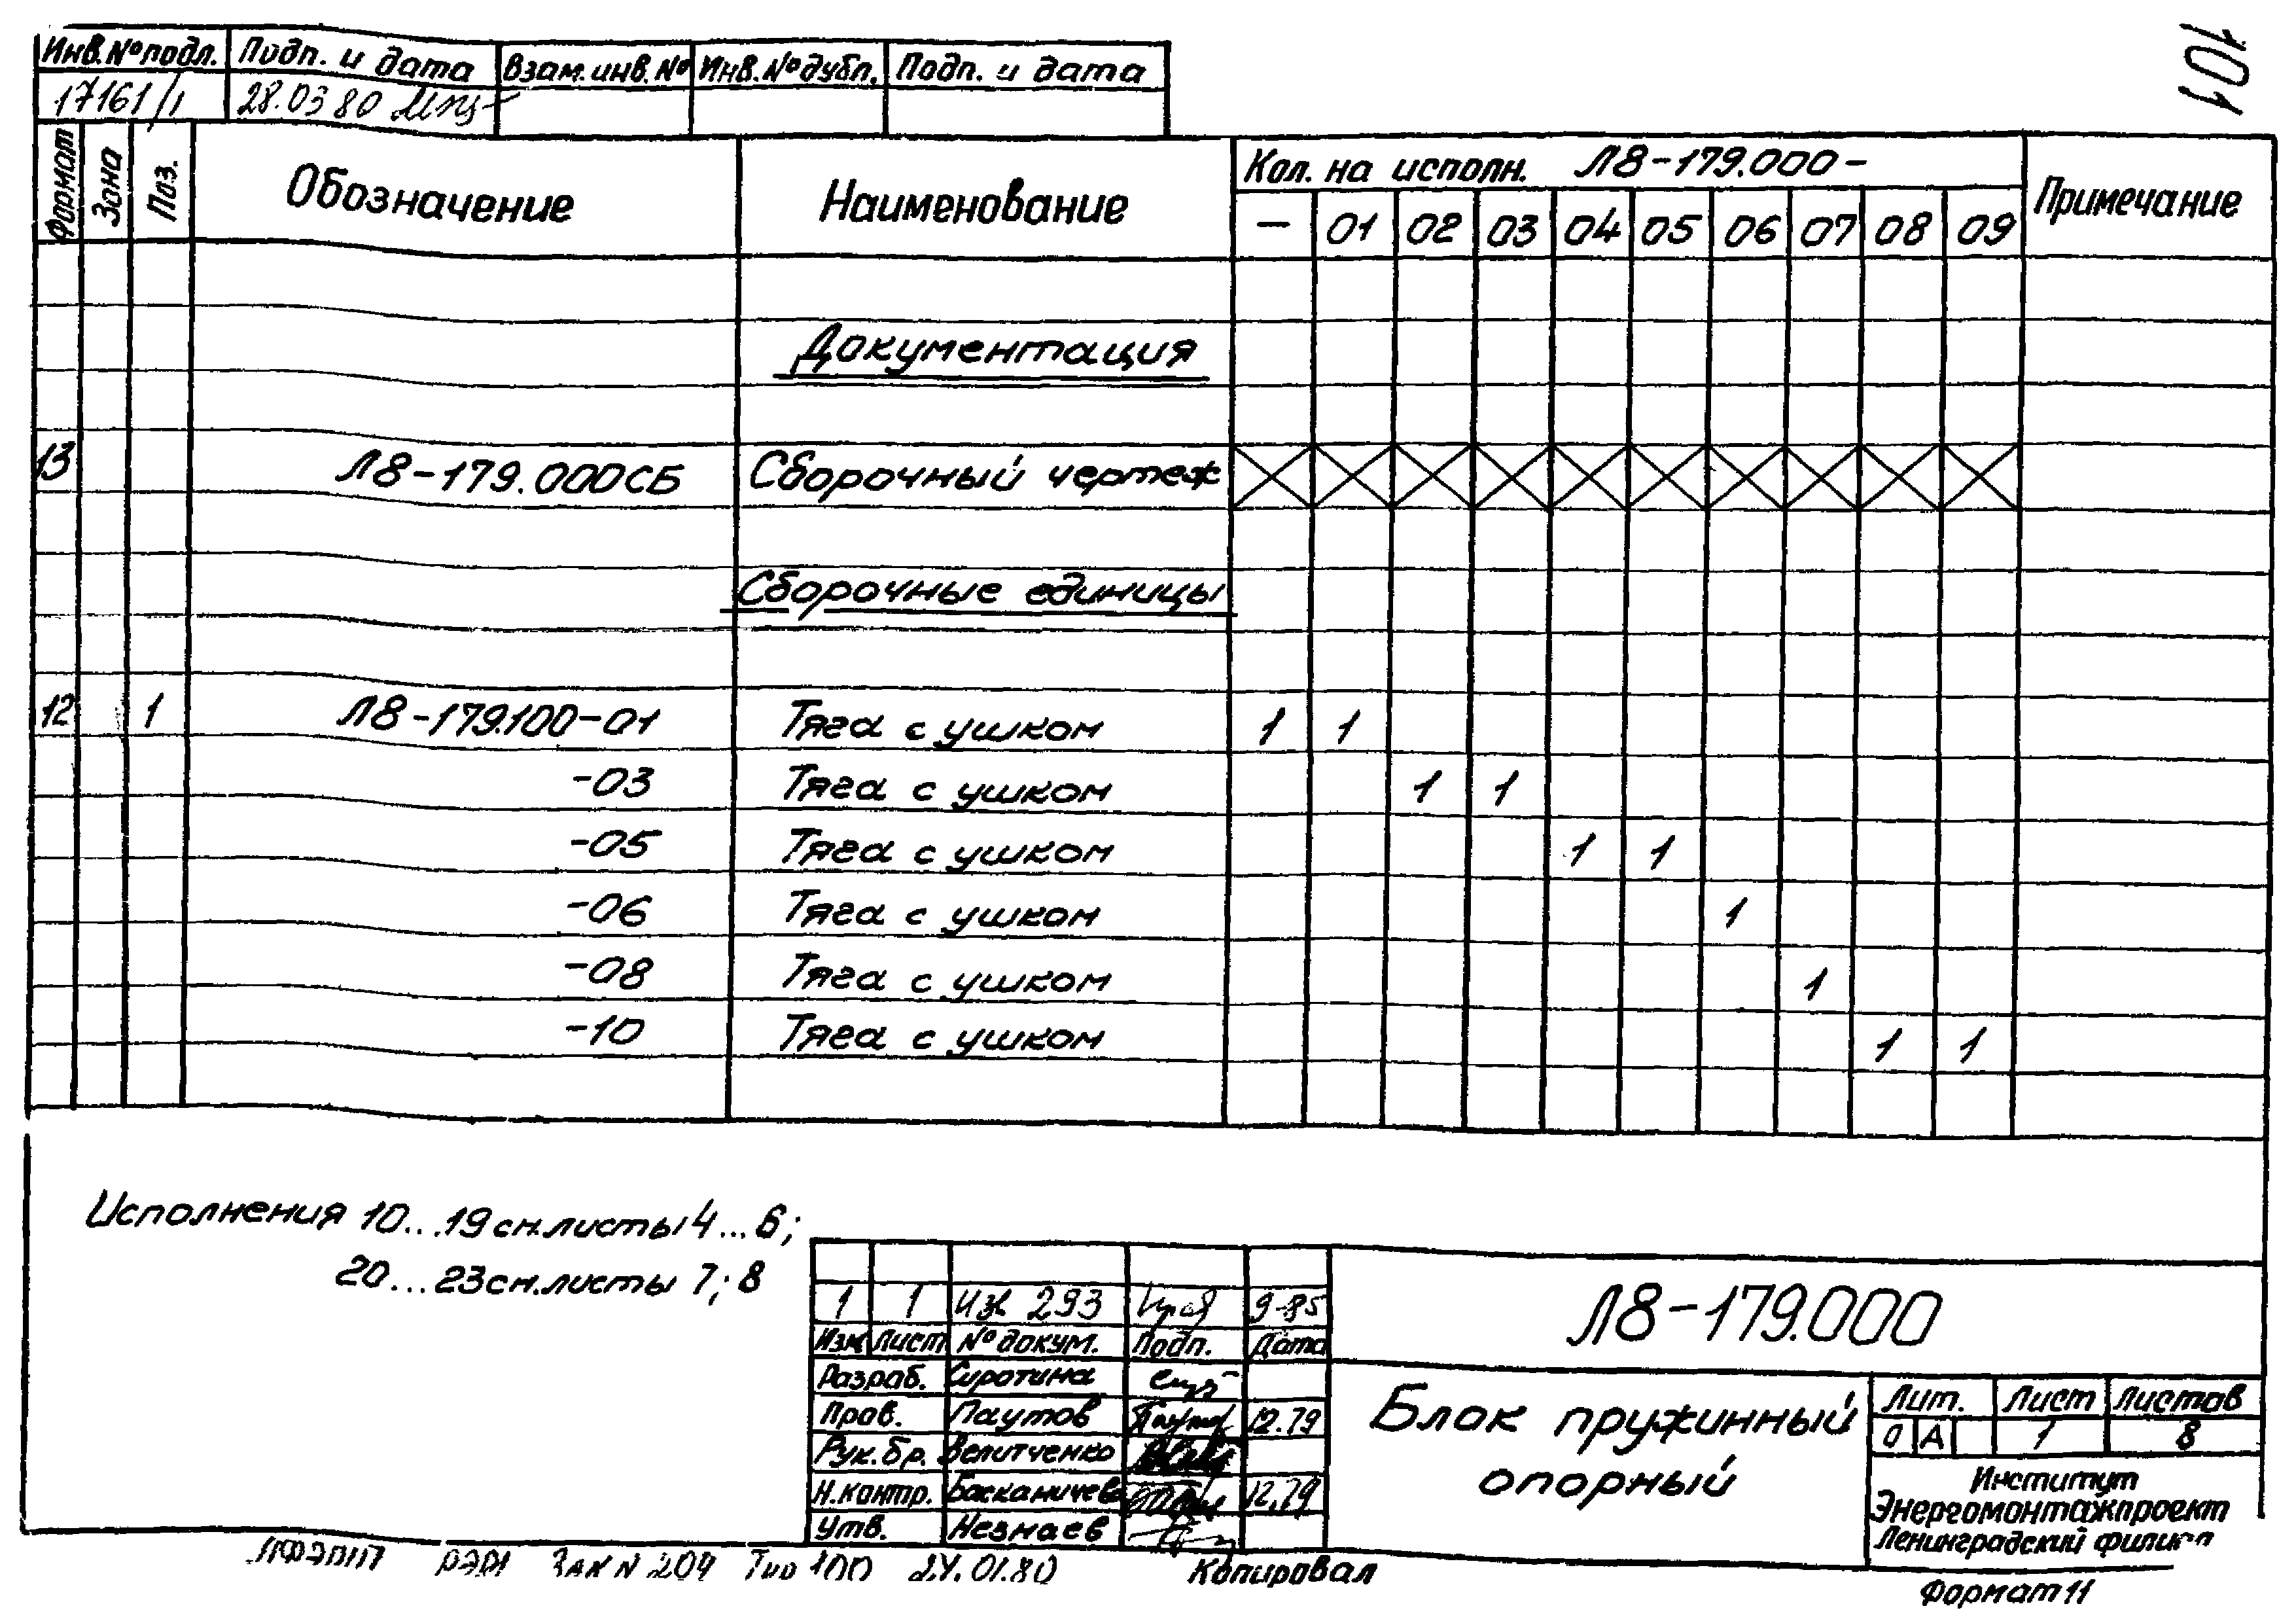 101
Инв.№подл. Подп. и дата Взам.инв.№ Инв.№дубл. Подп. и дата
17161/1 28.03 80
Формат Зона Поз. Обозначение Наименование Кол. на исполн. Л8-179.000- Примечание
— 01 02 03 04 05 06 07 08 09
Документация
13 Л8-179.000СБ Сборочный чертеж
Сборочные единицы
12 1 Л8-179.100-01 Тяга с ушком 1 1
-03 Тяга с ушком 1 1
-05 Тяга с ушком 1 1
-06 Тяга с ушком 1
-08 Тяга с ушком 1
-10 Тяга с ушком 1 1
Исполнения 10...19 см.листы 4...6;
20...23 см.листы 7;8
1 1 изв 293 9-85
Изм Лист № докум. Подп. Дата
Разраб. Сиротина
Пров. Паутов 12.79
Рук.бр. Велитченко
Н.контр. 12.79
Утв. Незнаев
Л8-179.000
Блок пружинный
опорный
Лит. Лист Листов
О А 1 8
Институт
Энергомонтажпроект
Ленинградский филиал
ЗАК N 204 100 24.01.80 Копировал
Формат 11